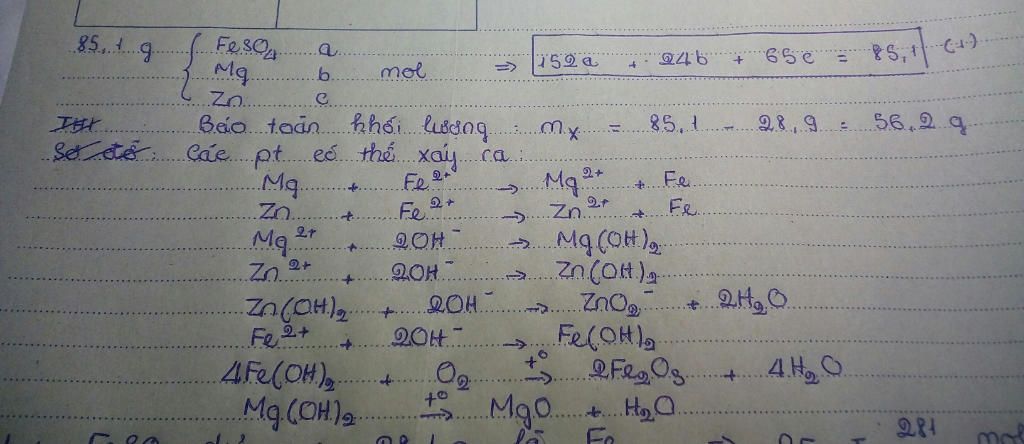 85,1 g { FeSO4 a
Mg b mol ⇒ 152a + 24b + 65c = 85,1 (1)
Zn c
Bảo toàn khối lượng : mX = 85,1 - 28,9 = 56,2 g
Sơ đồ : Các pt có thể xảy ra :
Mg + Fe²⁺ → Mg²⁺ + Fe
Zn + Fe²⁺ → Zn²⁺ + Fe
Mg²⁺ + 2OH⁻ → Mg(OH)₂
Zn²⁺ + 2OH⁻ → Zn(OH)₂
Zn(OH)₂ + 2OH⁻ → ZnO₂⁻ + 2H₂O
Fe²⁺ + 2OH⁻ → Fe(OH)₂
4Fe(OH)₂ + O₂ t° → 2Fe₂O₃ + 4H₂O
Mg(OH)₂ t° → MgO + H₂O
281